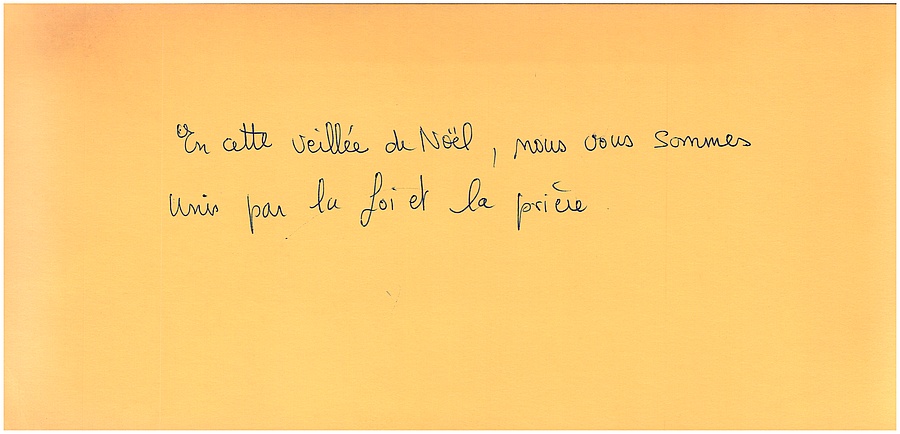 En cette veillée de Noël, nous vous sommes
unis par la foi et la prière.